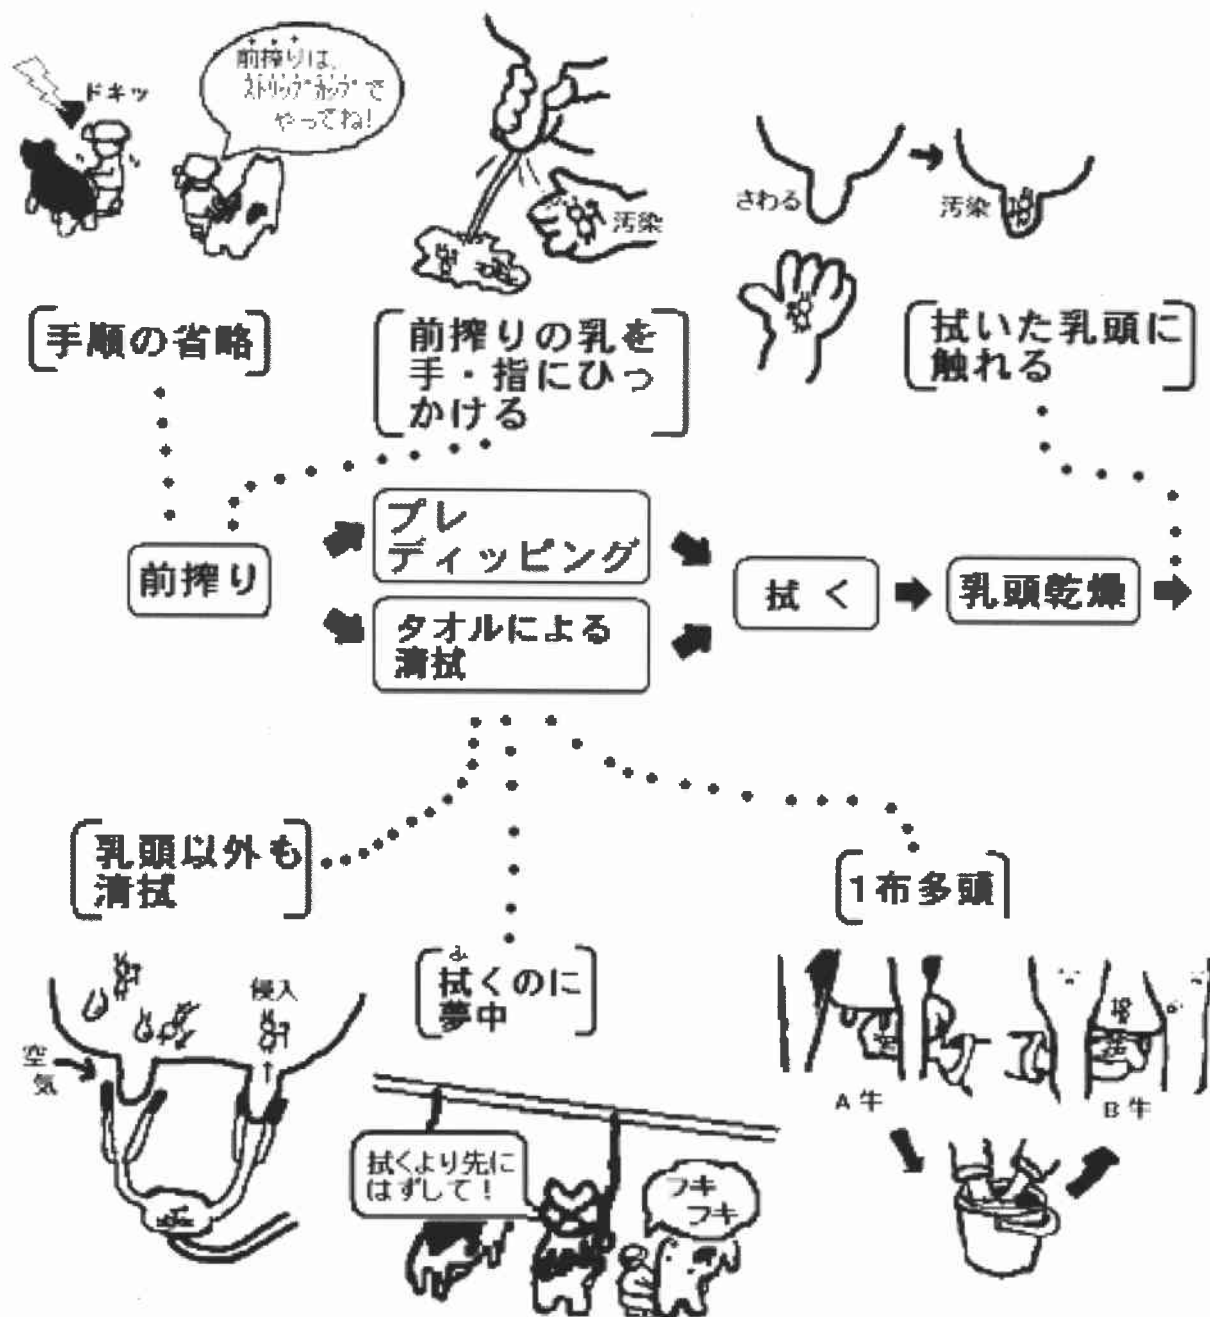 ドキッ
前搾りは、
ストリップカップで
やってね!
汚染
さわる
汚染
手順の省略
前搾りの乳を
手・指にひっ
かける
拭いた乳頭に
触れる
前搾り
プレ
ディッピング
タオルによる
清拭
拭く
乳頭乾燥
乳頭以外も
清拭
ふ
拭くのに
夢中
1布多頭
侵入
空
気
拭くより先に
はずして!
フキ
フキ
A牛
B牛